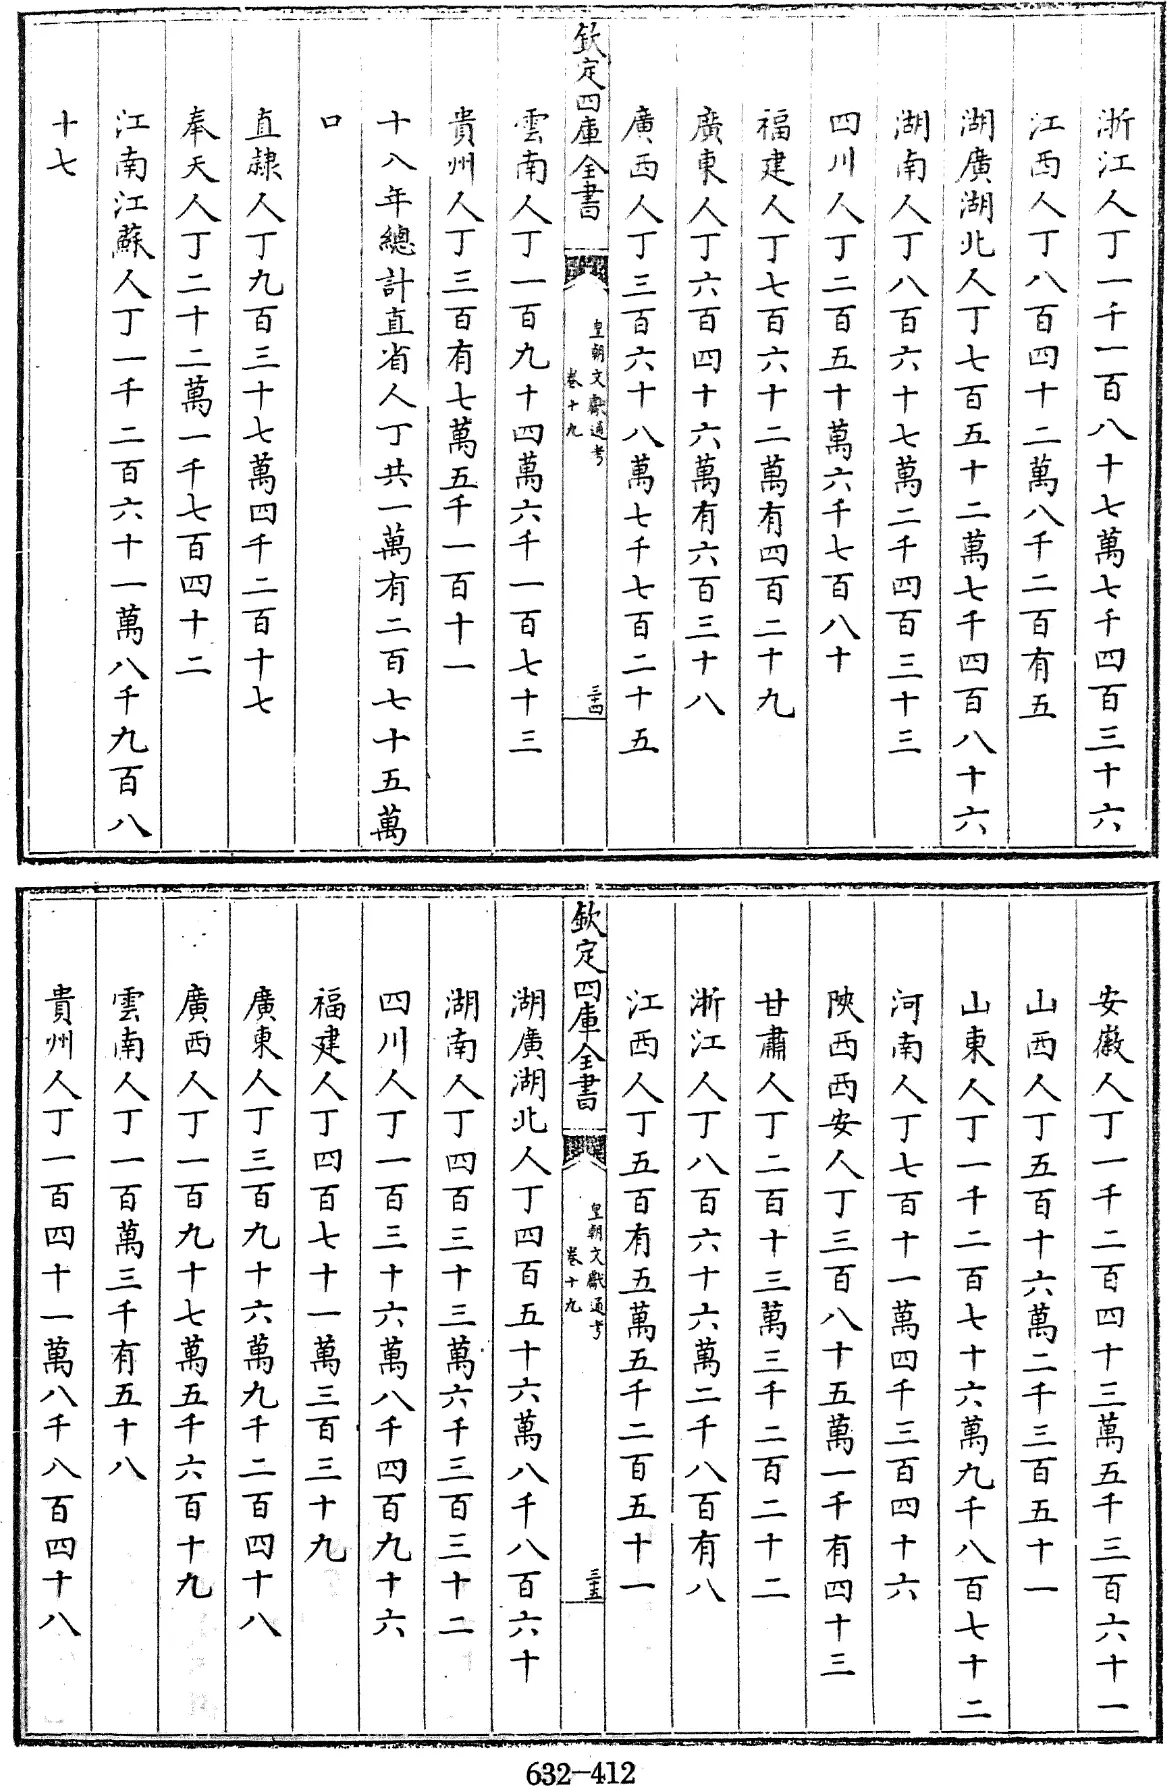 浙江人丁一千一百八十七萬七千四百三十六
江西人丁八百四十二萬八千二百有五
湖廣湖北人丁七百五十二萬七千四百八十六
湖南人丁八百六十七萬二千四百三十三
四川人丁二百五十萬六千七百八十
福建人丁七百六十二萬有四百二十九
廣東人丁六百四十六萬有六百三十八
廣西人丁三百六十八萬七千七百二十五
欽定四庫全書
皇朝文獻通考
卷十九
三四
雲南人丁一百九十四萬六千一百七十三
貴州人丁三百有七萬五千一百十一
十八年總計直省人丁共一萬有二百七十五萬
口
直隸人丁九百三十七萬四千二百十七
奉天人丁二十二萬一千七百四十二
江南江蘇人丁一千二百六十一萬八千九百八
十七
安徽人丁一千二百四十三萬五千三百六十一
山西人丁五百十六萬二千三百五十一
山東人丁一千二百七十六萬九千八百七十二
河南人丁七百十一萬四千三百四十六
陜西西安人丁三百八十五萬一千有四十三
甘肅人丁二百十三萬三千二百二十二
浙江人丁八百六十六萬二千八百有八
江西人丁五百有五萬五千二百五十一
欽定四庫全書
皇朝文獻通考
卷十九
三五
湖廣湖北人丁四百五十六萬八千八百六十
湖南人丁四百三十三萬六千三百三十二
四川人丁一百三十六萬八千四百九十六
福建人丁四百七十一萬三百三十九
廣東人丁三百九十六萬九千二百四十八
廣西人丁一百九十七萬五千六百十九
雲南人丁一百萬三千有五十八
貴州人丁一百四十一萬八千八百四十八
632-412